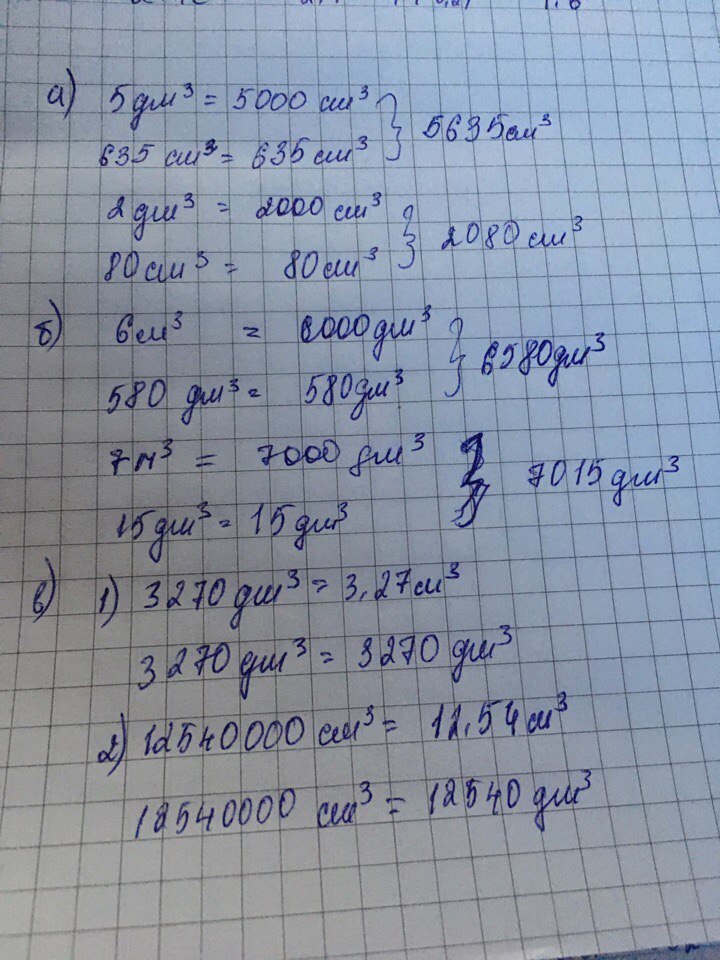 а) 5дм³ = 5000 см³ } 5635см³
635 см³ = 635 см³
2дм³ = 2000 см³ } 2080 см³
80см³ = 80см³
б) 6см³ = 6000дм³ } 6580дм³
580 дм³ = 580дм³
7м³ = 7000 дм³ } 7015дм³
15дм³ = 15дм³
в) 1) 3270 дм³ = 3,27см³
3270 дм³ = 3270 дм³
2) 12540000 см³ = 12,54 см³
12540000 см³ = 12540 дм³